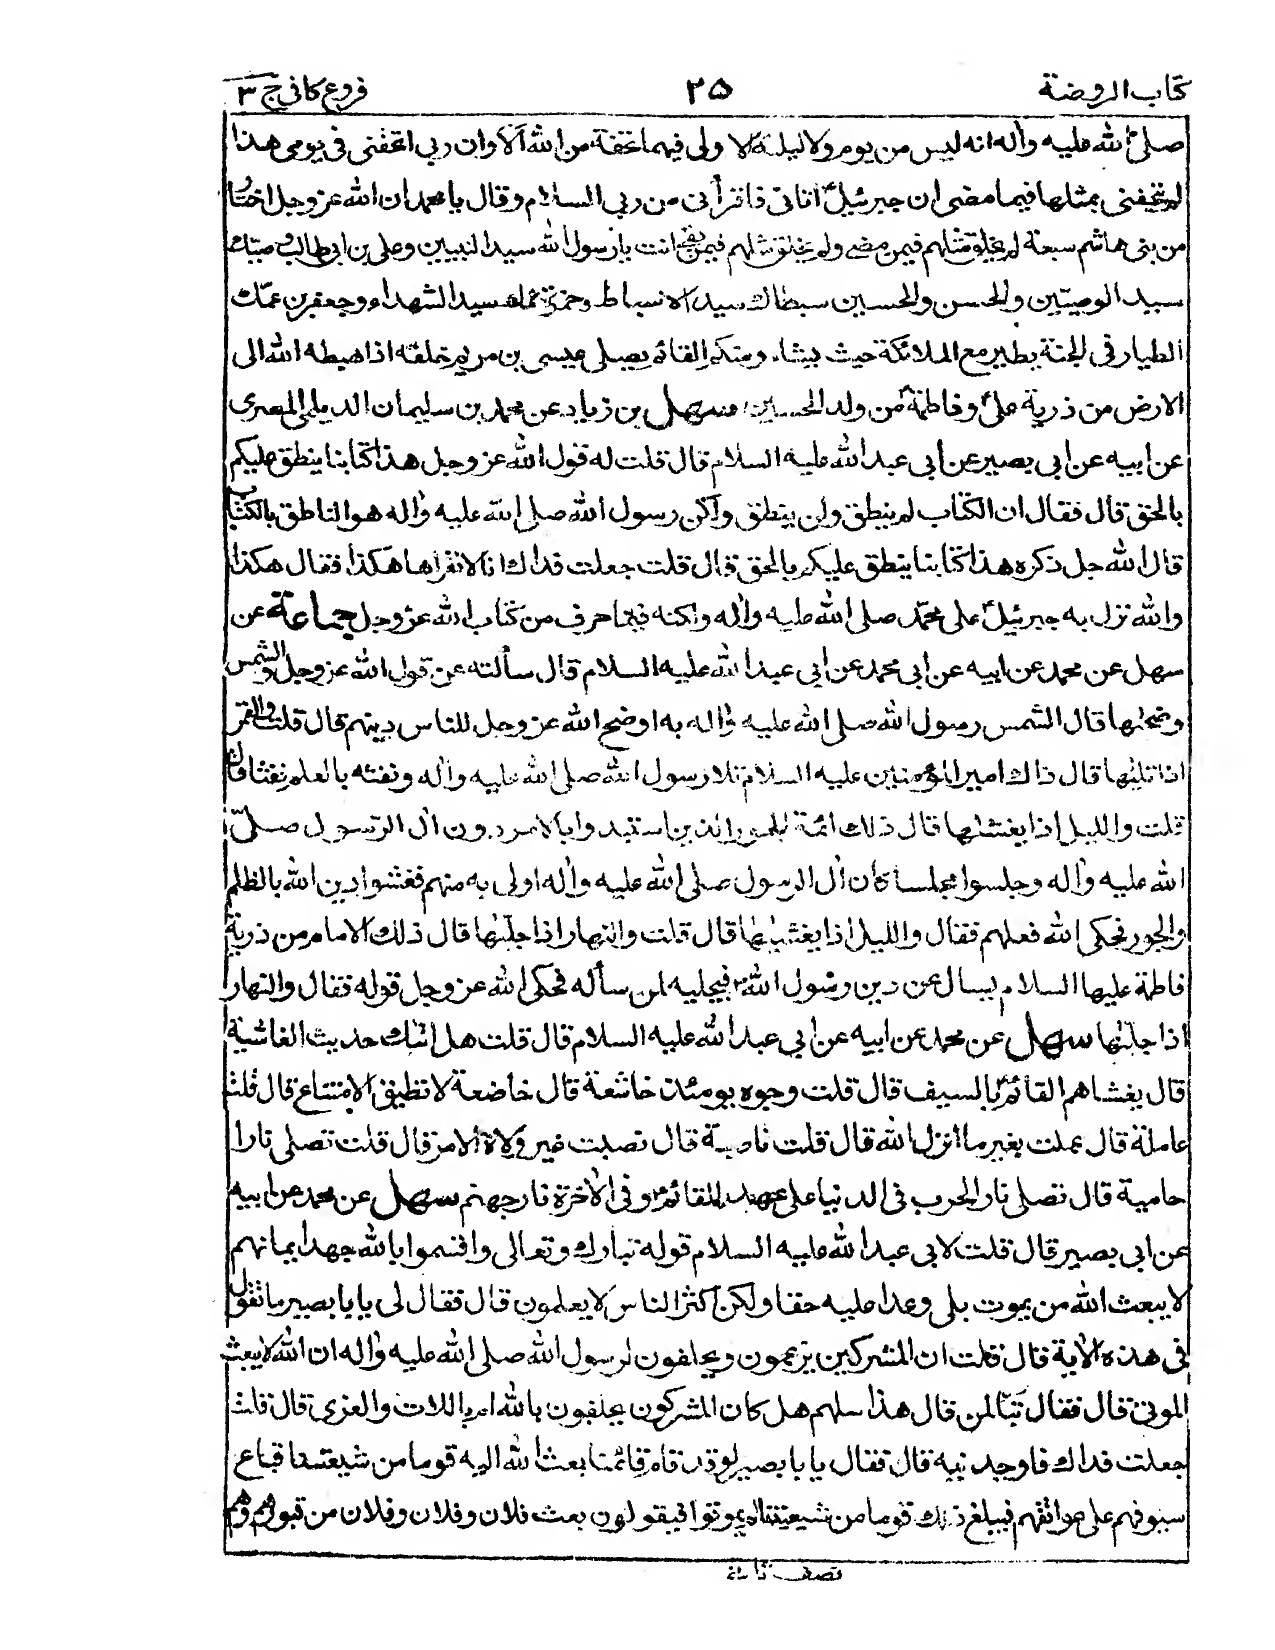 كتاب الروضة ٢٥ فروع كافى ج ٣
صلى الله عليه واله انه ليس من يوم ولا ليلة الا ولى فيهما تحفة من الله ألا وان ربى اتحفنى فى يومى هذا
لم يتحفنى بمثلها فيما مضى ان جبرئيلؑ اتانى فاقرأنى من ربى السلام وقال يا محمد ان الله عز وجل اختار
من بنى هاشم سبعة لم يخلق مثلهم فيمن مضى ولم يخلق مثلهم فيمن بقى انت يا رسول الله سيد النبيين وعلى بن ابى طالب وصيك
سيد الوصيين والحسن والحسين سبطاك سيد الاسباط وحمزة عمك سيد الشهداء وجعفر بن عمك
الطيار فى الجنة يطير مع الملائكة حيث يشاء ومنكم القائم يصلى عيسى بن مريم خلفه اذا هبطه الله الى
الارض من ذرية علىؑ وفاطمةؑ من ولد الحسينؑ سهل بن زياد عن محمد بن سليمان الديلمى المصرى
عن ابيه عن ابى بصير عن ابى عبد الله عليه السلام قال قلت له قول الله عز وجل هذا كتابنا ينطق عليكم
بالحق قال فقال ان الكتاب لم ينطق ولن ينطق ولكن رسول الله صلى الله عليه واله هو الناطق بالكتاب
قال الله جل ذكره هذا كتابنا ينطق عليكم بالحق قال قلت جعلت فداك انا لا نقراها هكذا فقال هكذا
والله نزل به جبرئيلؑ على محمد صلى الله عليه واله ولكنه فيما حرف من كتاب الله عز وجل جماعة عن
سهل عن محمد عن ابيه عن ابى محمد عن ابى عبد الله عليه السلام قال سألته عن قول الله عز وجل والشمس
وضحيها قال الشمس رسول الله صلى الله عليه واله به اوضح الله عز وجل للناس دينهم قال قلت والقمر
اذا تليها قال ذاك امير المؤمنين عليه السلام تلا رسول الله صلى الله عليه واله ونفثه بالعلم نفثا قال
قلت والليل اذا يغشيها قال ذلك ائمة الجور الذين استبدوا بالامر دون ال الرسول صلى
الله عليه واله وجلسوا مجلسا كان ال الرسول صلى الله عليه واله اولى به منهم فغشوا دين الله بالظلم
والجور فحكى الله فعلهم فقال والليل اذا يغشيها قال قلت والنهار اذا جليها قال ذلك الامام من ذرية
فاطمة عليها السلام يسال عن دين رسول اللهؐ فيجليه لمن سأله فحكى الله عز وجل قوله فقال والنهار
اذا جليها سهل عن محمد عن ابيه عن ابى عبد الله عليه السلام قال قلت هل اتيك حديث الغاشية
قال يغشاهم القائمؑ بالسيف قال قلت وجوه يومئذ خاشعة قال خاضعة لا تطيق الامتناع قال قلت
عاملة قال عملت بغير ما انزل الله قال قلت ناصبة قال نصبت غير ولاة الامر قال قلت تصلى نارا
حامية قال تصلى نار الحرب فى الدنيا على عهد القائمؑ وفى الاخرة نار جهنم سهل عن محمد عن ابيه
عن ابى بصير قال قلت لابى عبد الله عليه السلام قوله تبارك وتعالى واقسموا بالله جهد ايمانهم
لا يبعث الله من يموت بلى وعدا عليه حقا ولكن اكثر الناس لا يعلمون قال فقال لى يا با بصير ما تقول
فى هذه الاية قال قلت ان المشركين يزعمون ويحلفون لرسول الله صلى الله عليه واله ان الله لا يبعث
الموتى قال فقال تبا لمن قال هذا سلهم هل كان المشركون يحلفون بالله ام باللات والعزى قال قلت
جعلت فداك فاوجدنيه قال فقال يا با بصير لو قد قام قائمنا بعث الله اليه قوما من شيعتنا قباع
سيوفهم على عواتقهم فيبلغ ذلك قوما من شيعتنا لم يموتوا فيقولون بعث فلان وفلان وفلان من قبورهم وهم